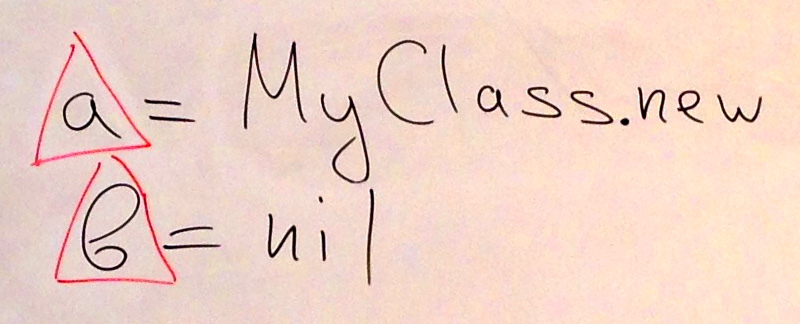 a = MyClass.new
b = nil